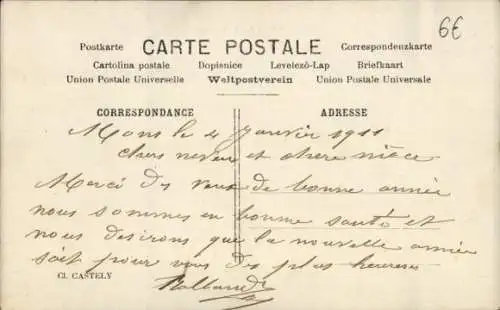 6€
Postkarte CARTE POSTALE Correspondenzkarte
Cartolina postale Dopisnice Levelező-Lap Briefkaart
Union Postale Universelle Weltpostverein Union Postale Universale
CORRESPONDANCE ADRESSE
Mons le 4 Janvier 1911
chers neveu et chère nièce
Merci des vœux de bonne année
nous sommes en bonne santé et
nous desirons que la nouvelle année
soit pour vous des plus heureuse
Cl. CASTELY
Rolland